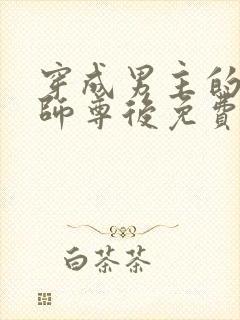 穿成男主的
師尊後免費
白茶茶